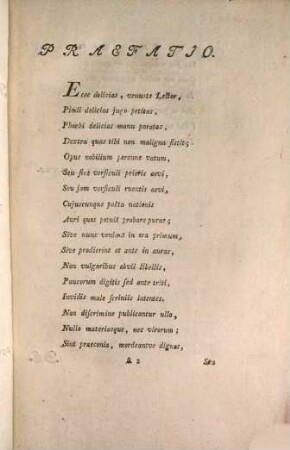 PRAEFATIO.
Ecce delicias, venuste Lector,
Phocii delicias jugo petitas,
Phoebi delicias manu paratas,
Dextra quas tibi non maligna sistit;
Opus nobilium perenne vatum,
Seu sint versiculi prioris aevi,
Seu jam versiculi ruentis aevi,
Cujuscunque poëta nationis
Auri quos potuit probare purae;
Sive nunc veniant in ora primum,
Sive prodierint et ante in auras,
Non vulgaribus obvii libellis,
Paucorum digitis sed ante triti,
Invidis male scriniis latentes.
Non discrimine publicantur ullo,
Nullo materiaeque, nec virorum;
Sint praeconia, mordeantve dignos,
A 2 Seu